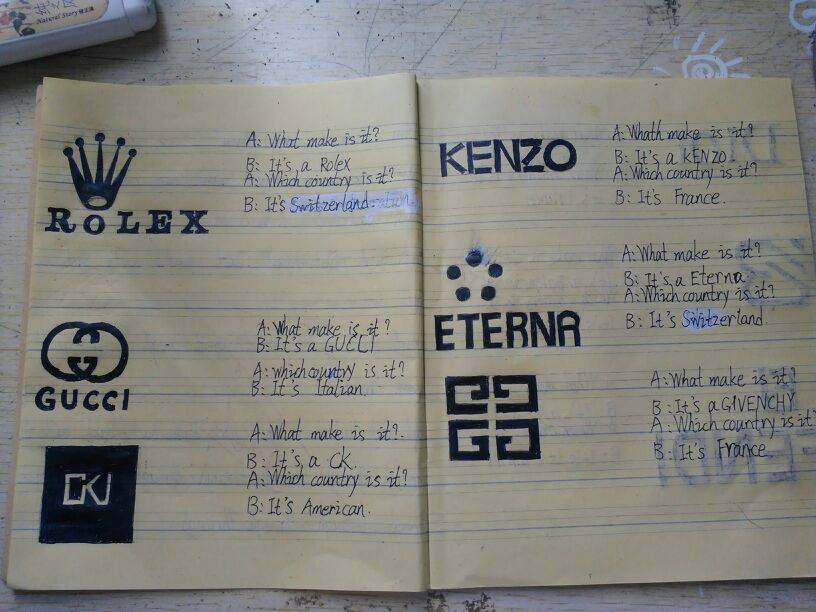 Natural Story
ROLEX
A: What make is it?
B: It's a Rolex
A: Which country is it?
B: It's Switzerland.
GUCCI
A: What make is it?
B: It's a GUCCI
A: which country is it?
B: It's Italian.
CK
A: What make is it?.
B: It's a CK.
A: Which country is it?
B: It's American.
KENZO
A: Whath make is it?
B: It's a KENZO.
A: Which country is it?
B: It's France.
ETERNA
A: What make is it?
B: It's a Eterna.
A: Which country is it?
B: It's Switzerland.
A: What make is it?
B: It's a GIVENCHY
A: Which country is it?
B: It's France.